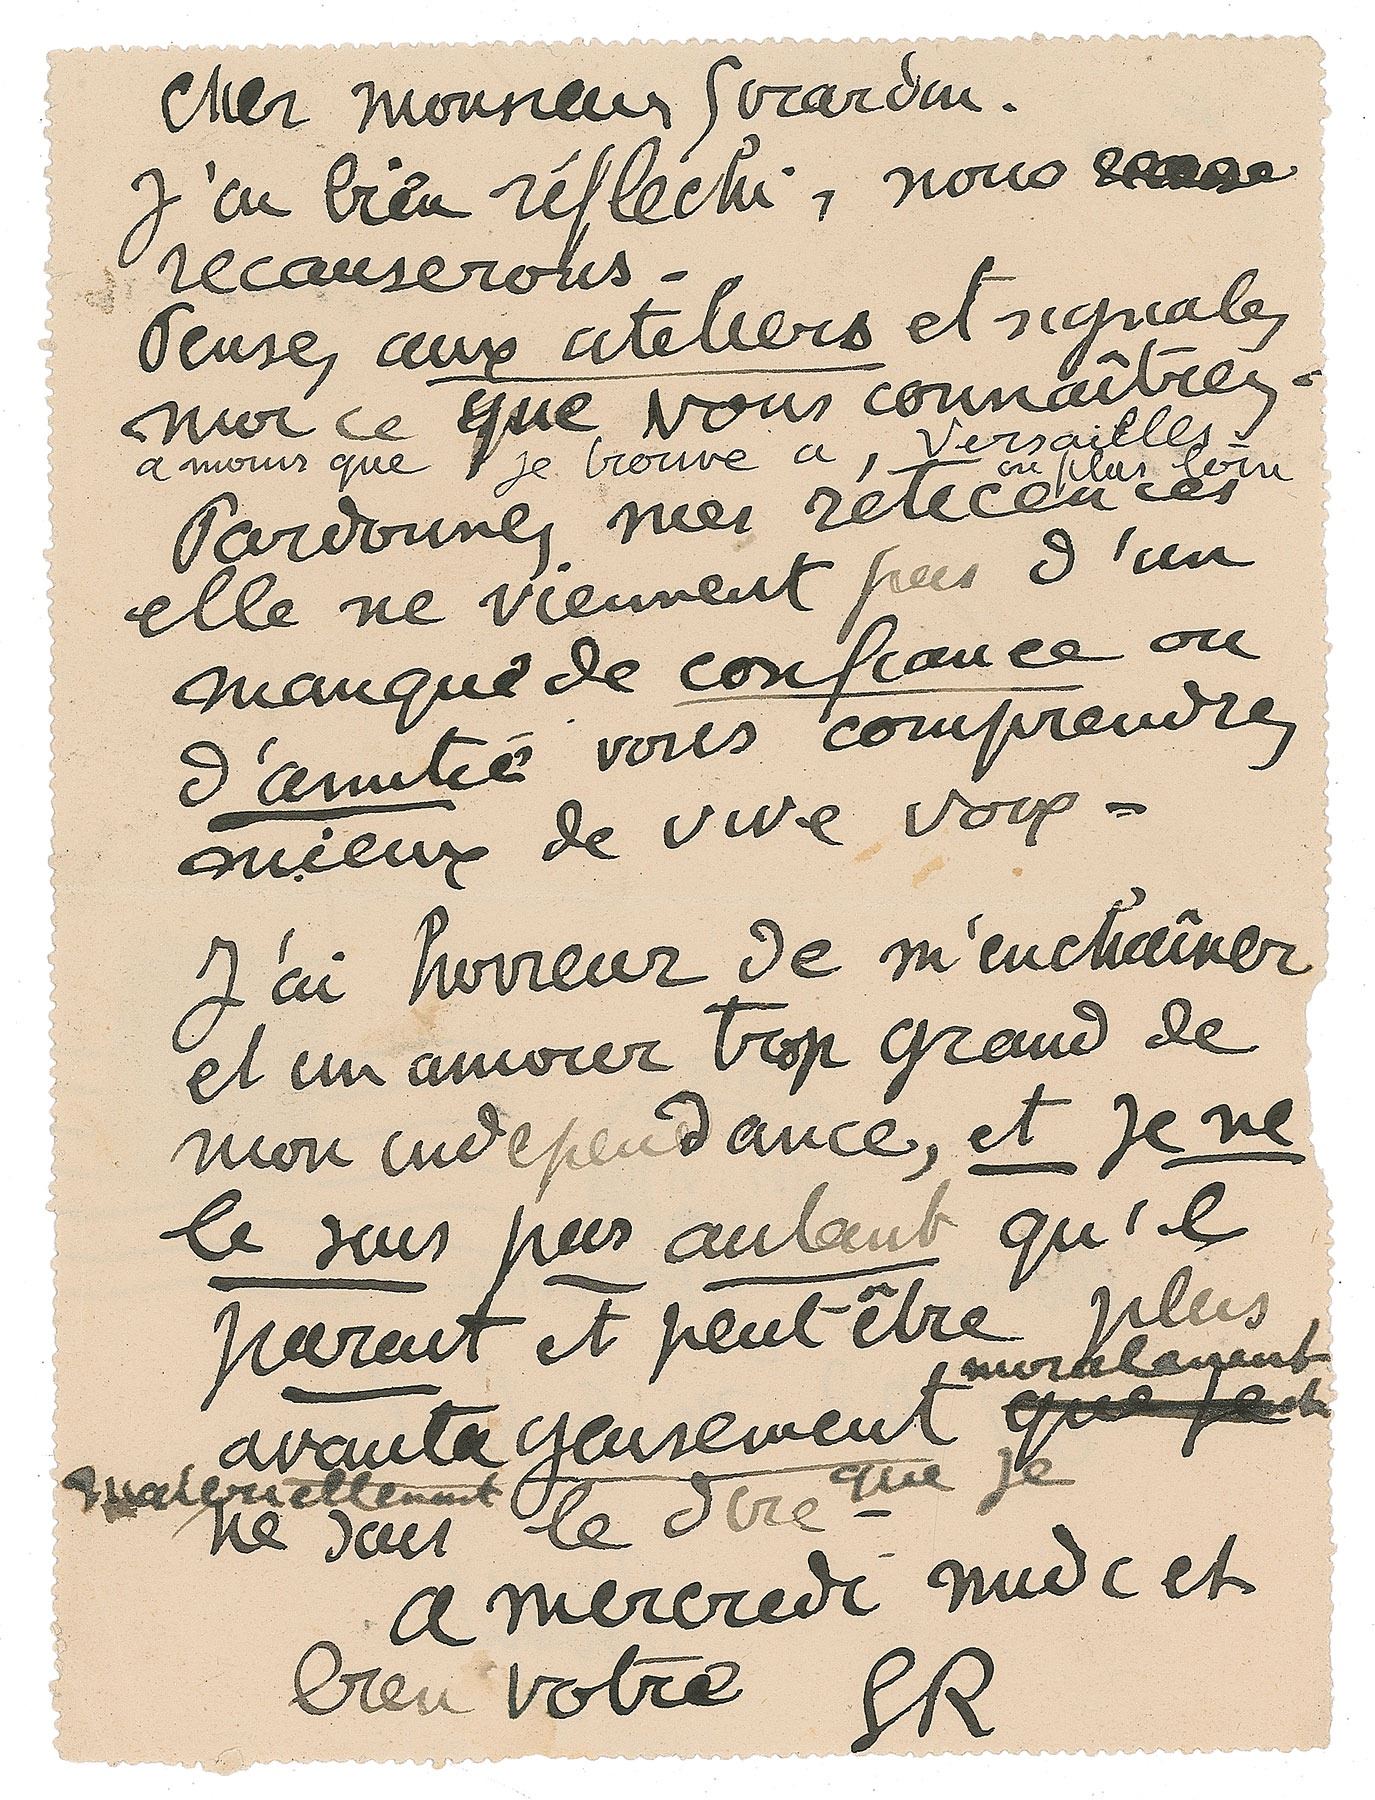 Cher monsieur Girardin.
J'ai bien réfléchi, nous
recauserons -
Pensez aux ateliers et signalez
moi ce que vous connaîtrez -
a moins que je trouve a, Versailles
ou plus loin
Pardonnez mes réticences
elle ne viennent pas d'un
manque de confiance ou
d'amitié vous comprendrez
mieux de vive voix -
J'ai horreur de m'enchaîner
et un amour trop grand de
mon independance, et je ne
le suis pas autant qu'il
parait et peut être plus
moralement
avantageusement que je
materiellement que je
ne sais le dire -
a mercredi midi et
bien votre GR